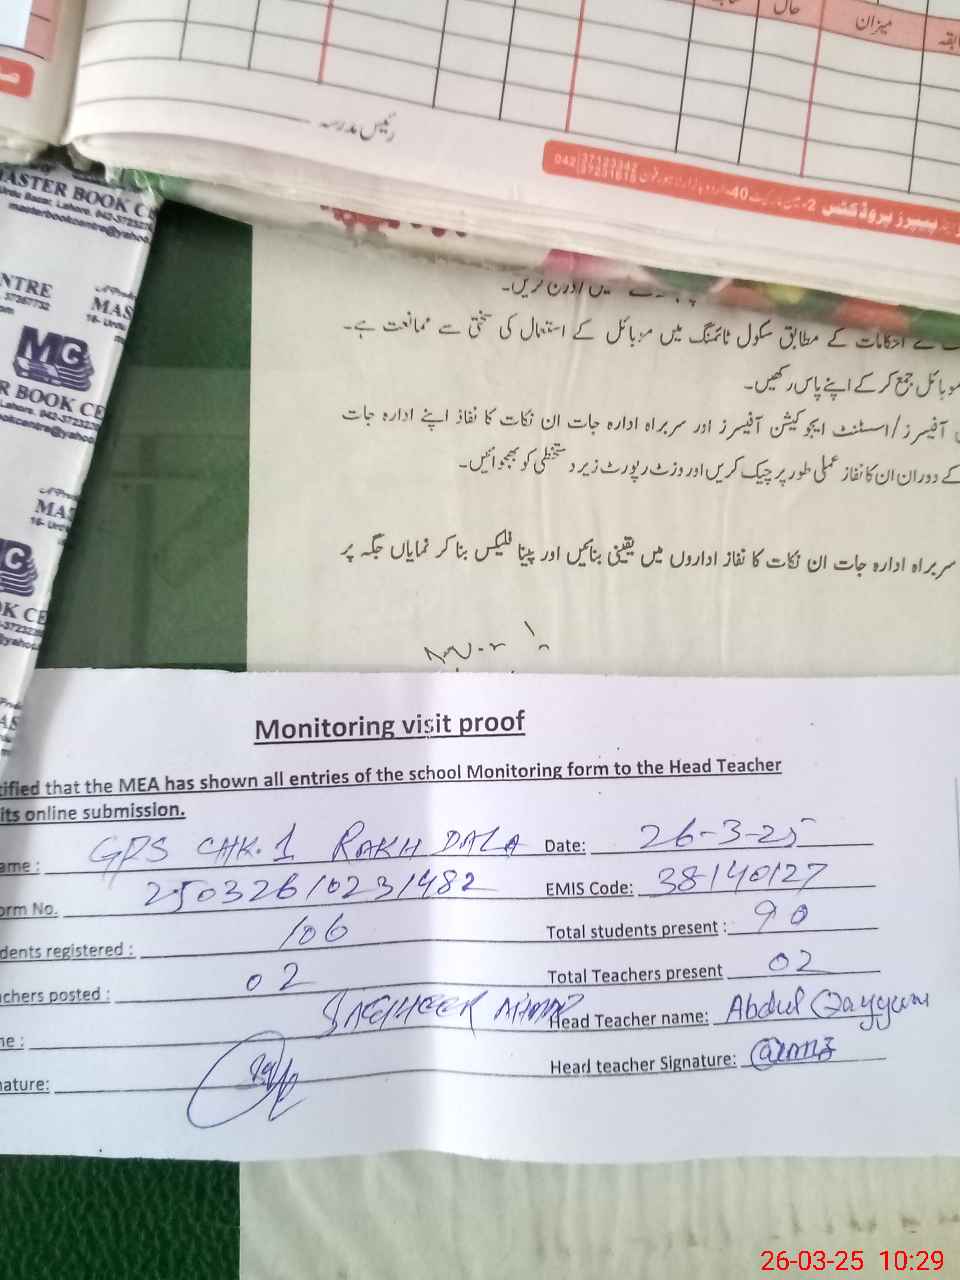 حال
میزان
رئیس مدرسہ
042
37123342
37231518
پیپرز پروڈکٹس 2-
40-
MASTER BOOK CE
Urdu Bazar, Lahore. 042-3723
masterbookcentre@yahoo
NTRE
37357732
MAS
16- Urdu
MC
R BOOK CE
Lahore. 042-372323
ookcentre@yahoo
MAS
16- Urdu
C
OK CE
-372323
@yahoo
میں اذان کریں۔
احکامات کے مطابق سکول ٹائمنگ میں موبائل کے استعمال کی سختی سے ممانعت ہے۔
موبائل جمع کر کے اپنے پاس رکھیں۔
آفیسرز/اسسٹنٹ ایجوکیشن آفیسرز اور سربراہ ادارہ جات ان نکات کا نفاذ اپنے ادارہ جات
کے دوران ان کا نفاذ عملی طور پر چیک کریں اور وزٹ رپورٹ زیر دستخطی کو بھجوائیں۔
سربراہ ادارہ جات ان نکات کا نفاذ اداروں میں یقینی بنائیں اور پینا فلیکس بنا کر نمایاں جگہ پر
Monitoring visit proof
tified that the MEA has shown all entries of the school Monitoring form to the Head Teacher
its online submission.
ame : GPS CHK.1 RAKH DALA Date: 26-3-25
orm No. 25032610231482 EMIS Code: 38140127
dents registered : 106 Total students present : 90
chers posted : 02 Total Teachers present 02
ne : Head Teacher name: Abdul Qayyum
nature: Head teacher Signature:
26-03-25 10:29